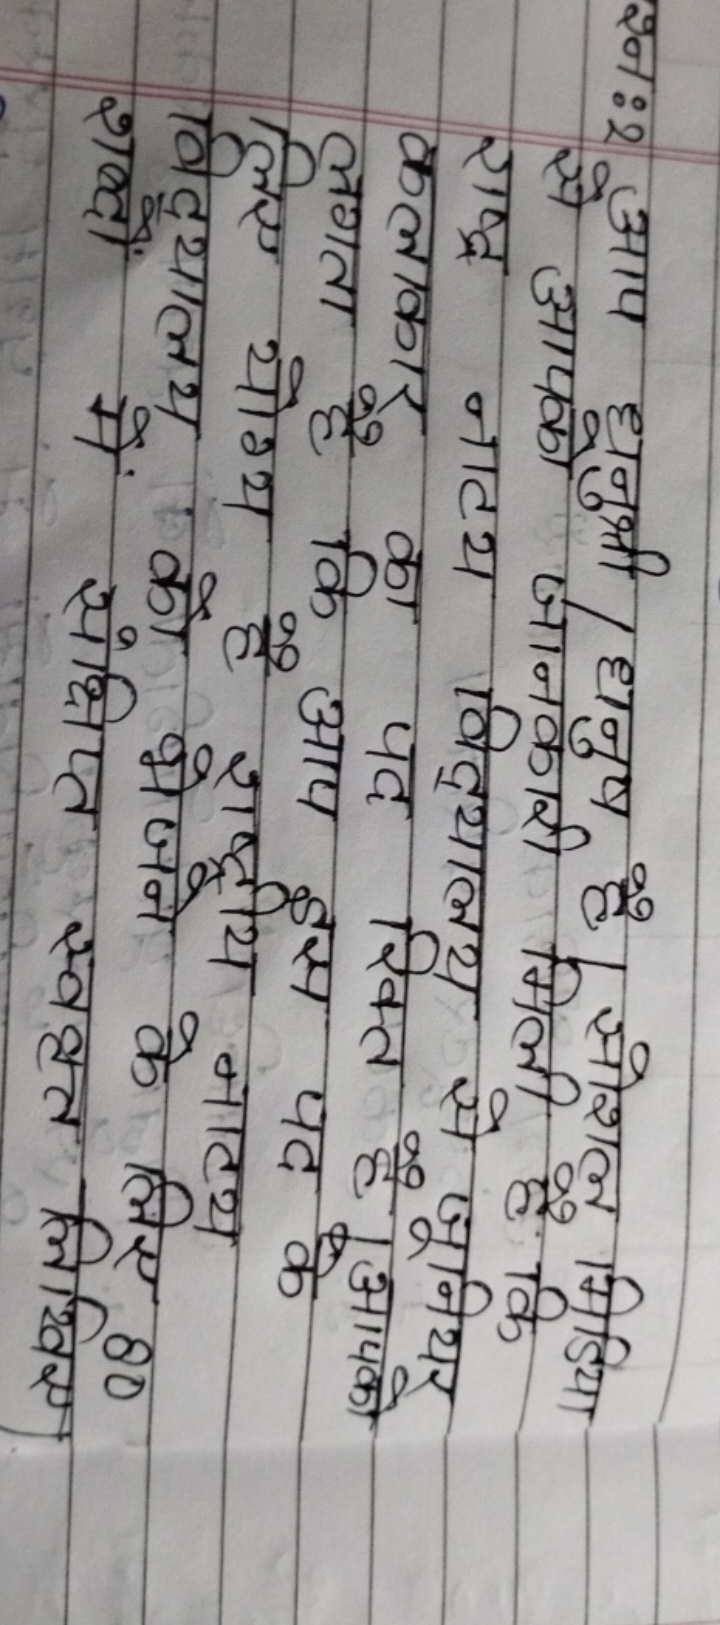 श्न:2 आप धनुश्री / धनुष है । सोशल मिडिया
से आपको जानकारी मिली है कि
राष्ट्र नाट्य विद्यालय से जूनियर
कलाकार का पद रिक्त है । आपको
लगता है कि आप इस पद के
लिए योग्य है राष्ट्रीय नाट्य
विद्यालय को भेजने के लिए 80
शब्दों में संक्षिप्त स्ववृत्त लिखिए